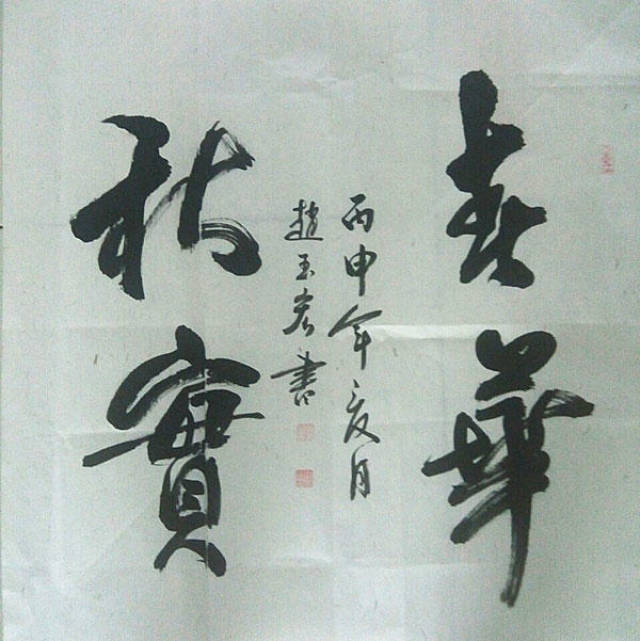 春華
秋實
丙申年夏月
趙玉宏書